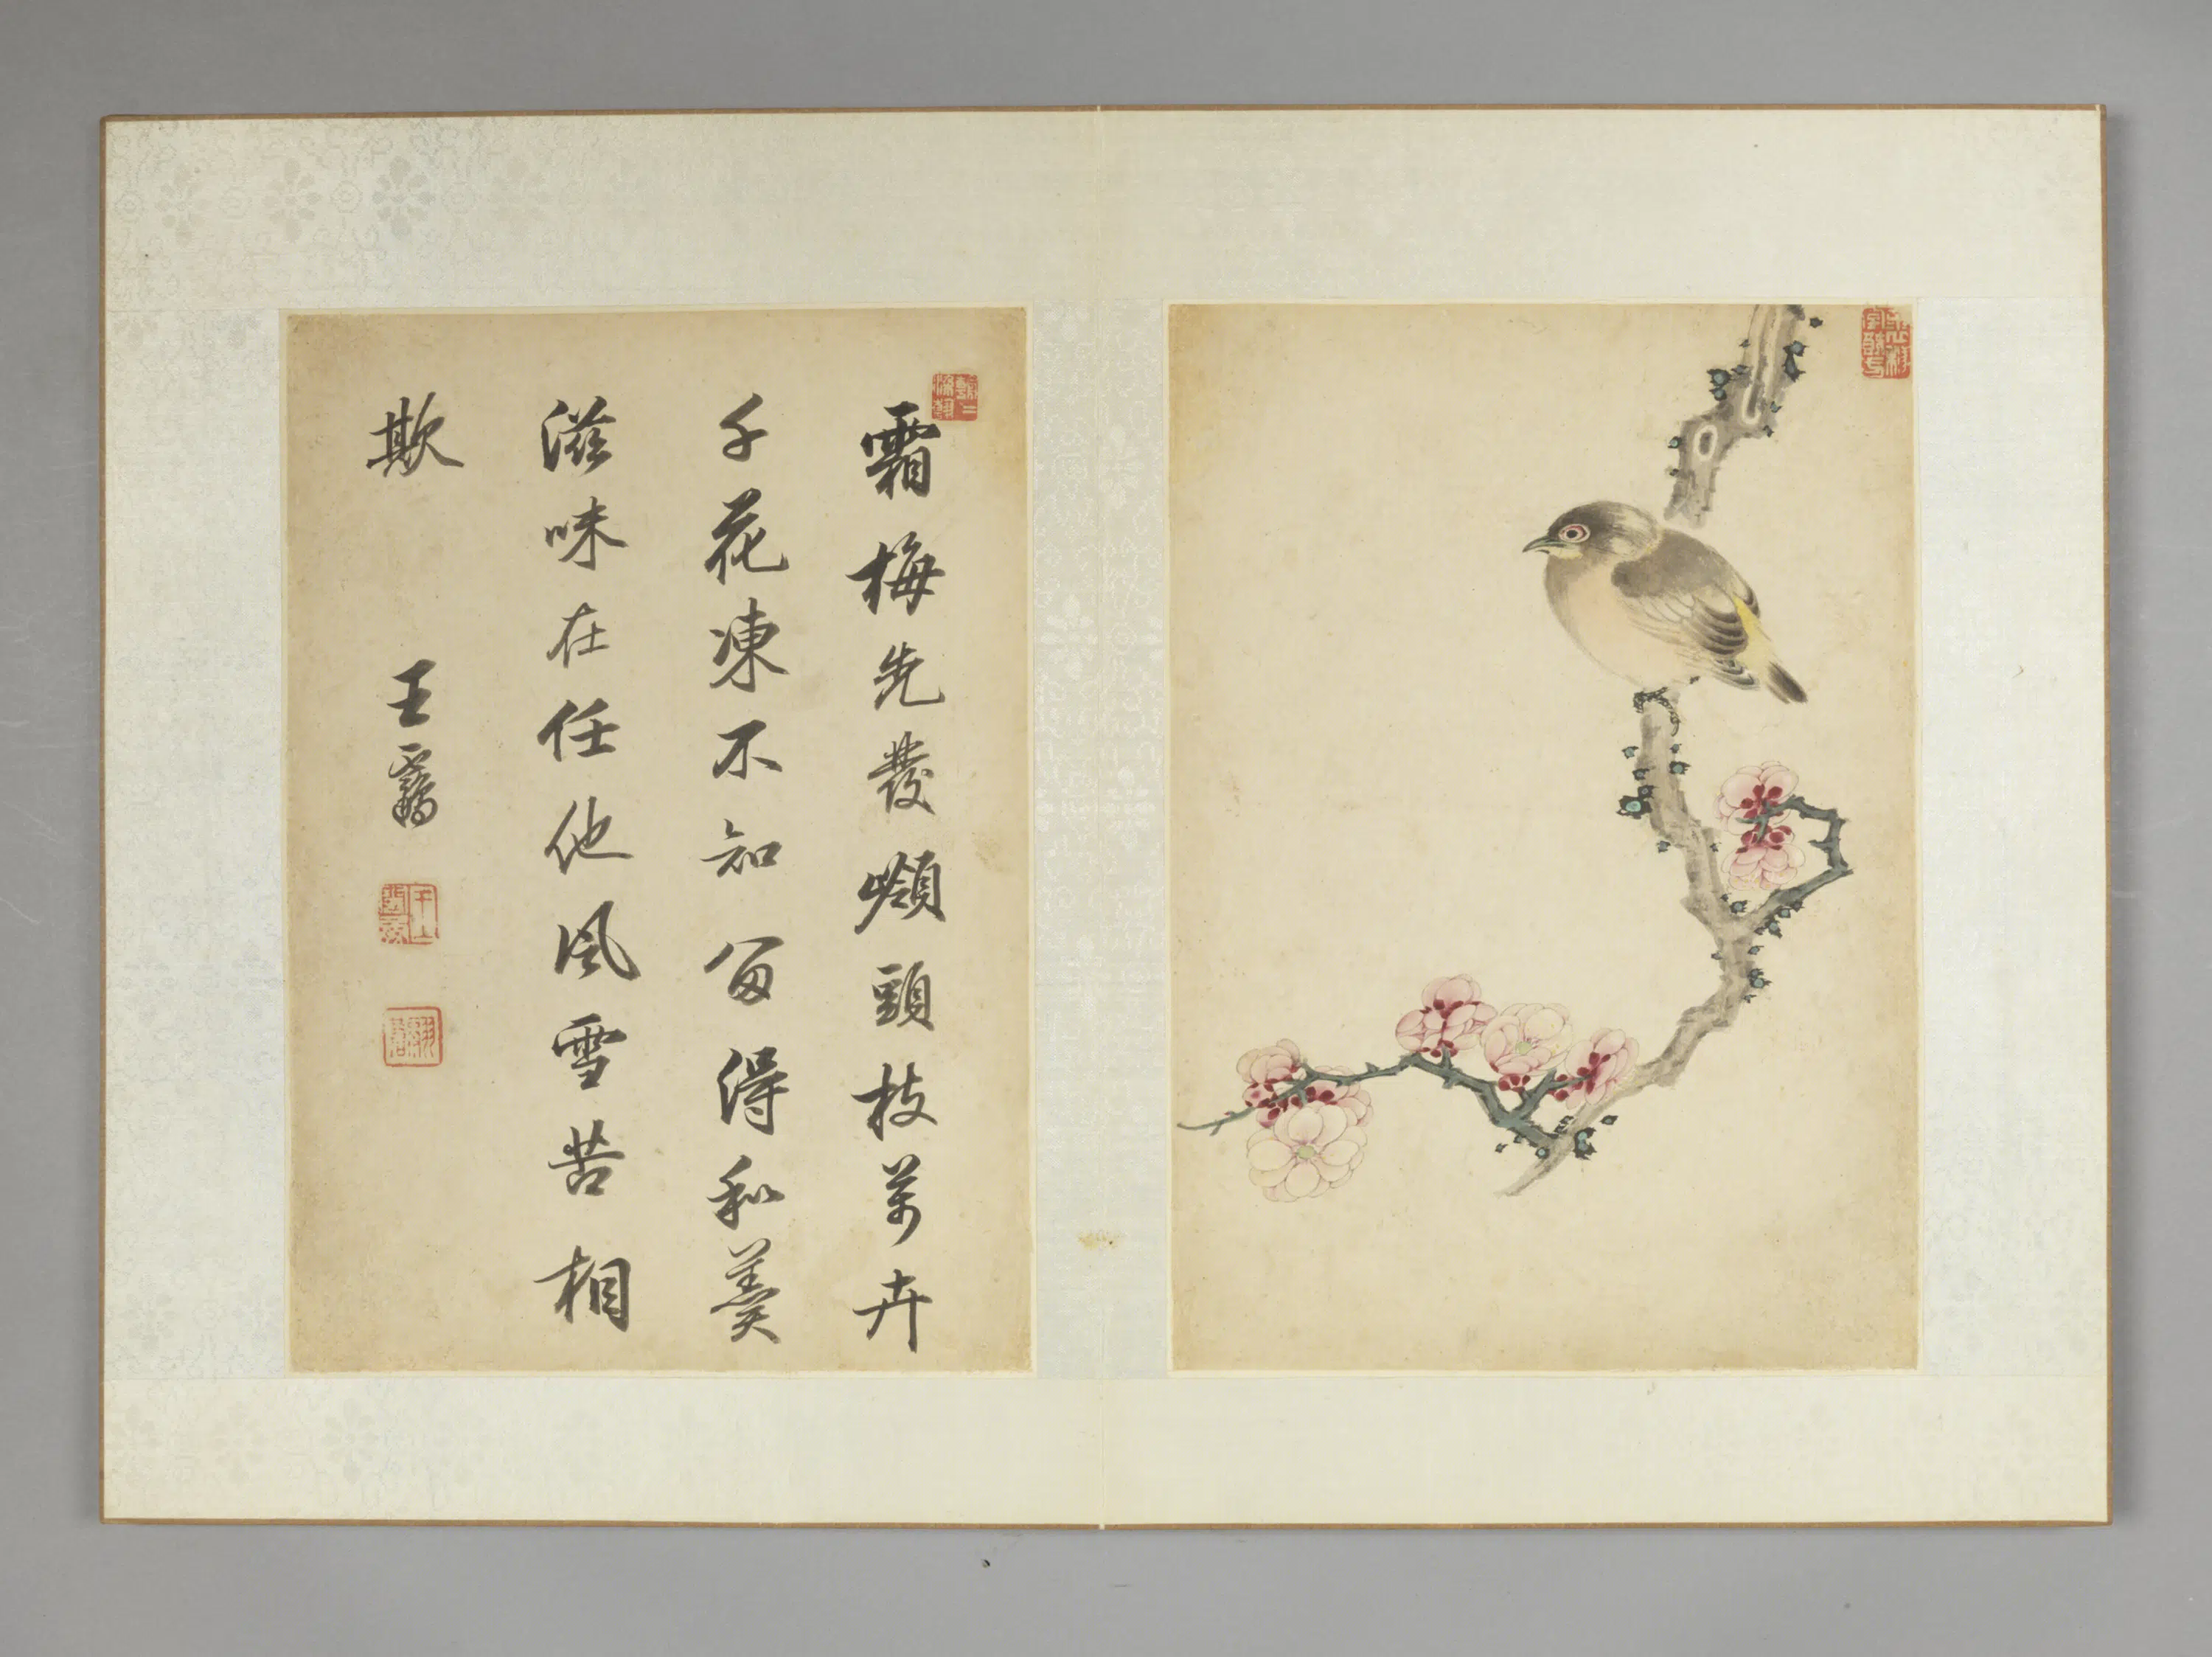 霜梅先發嶺頭枝萬卉
千花凍不知留得和羹
滋味在任他風雪苦相
欺
王翯